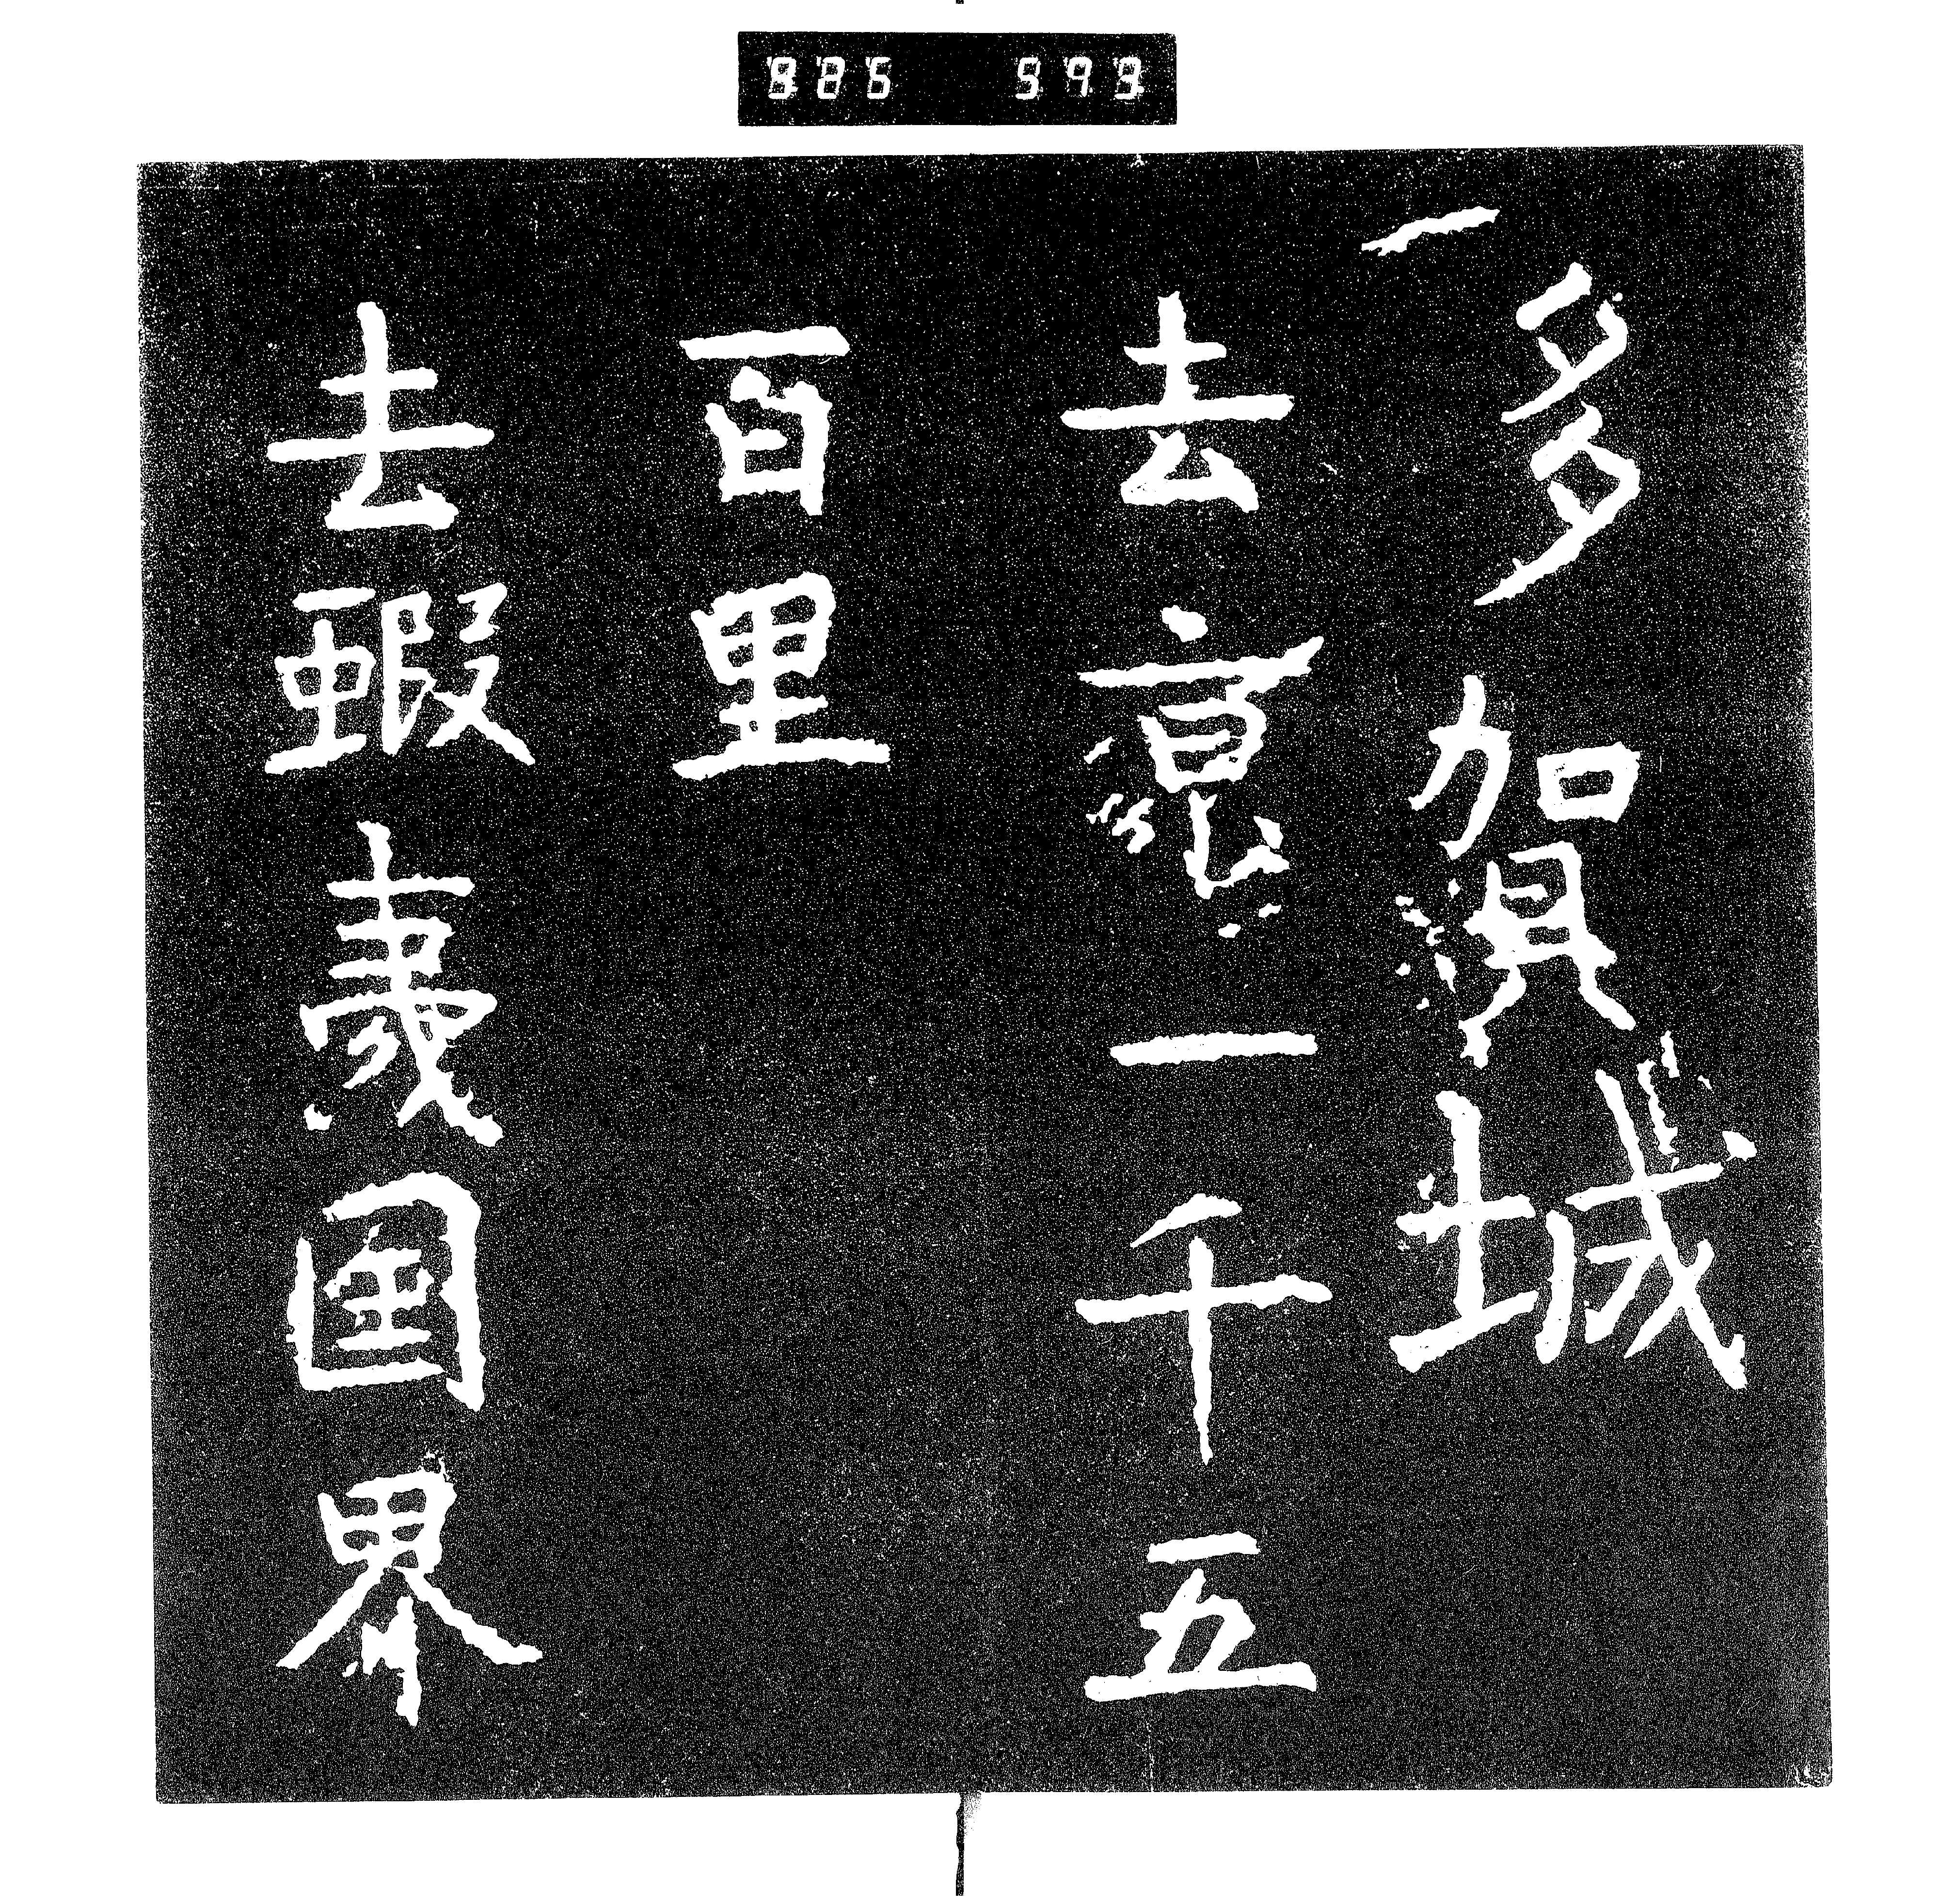 885 593
多賀城
去京一千五
百里
去蝦夷国界